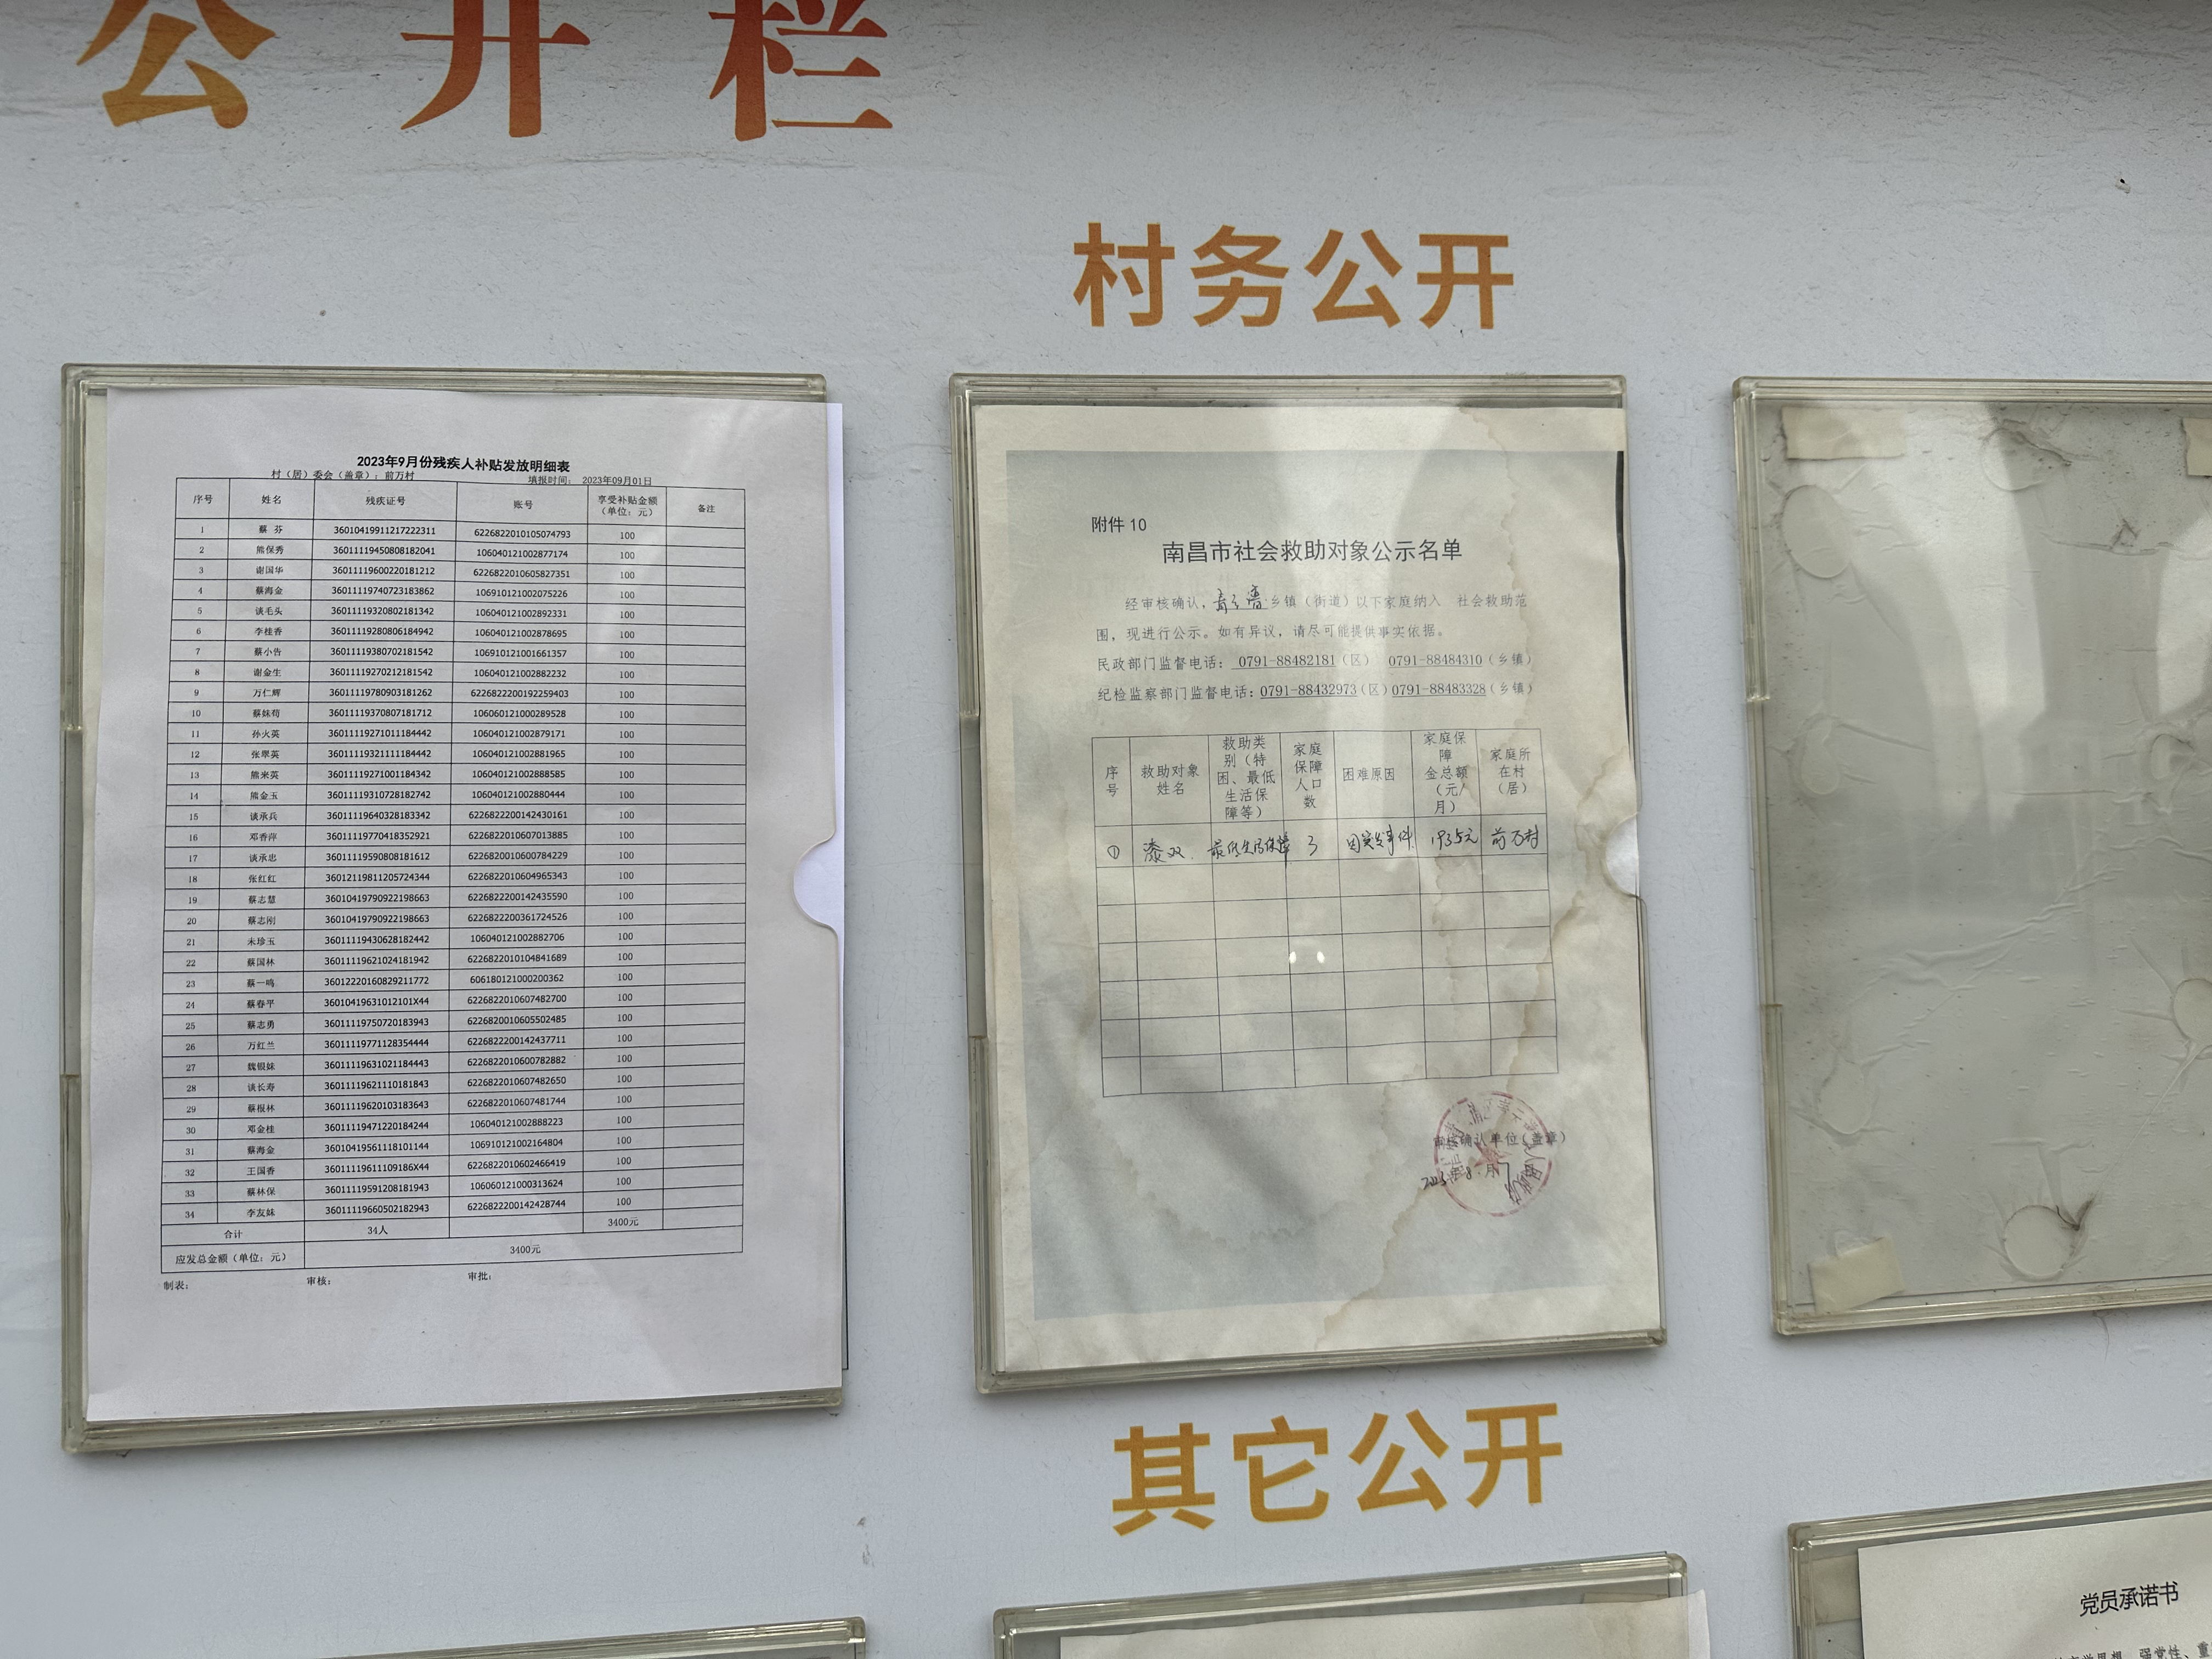 公开栏
村务公开
2023年9月份残疾人补贴发放明细表
村（居）委会（盖章）：前万村 填报时间： 2023年09月01日
序号 姓名 残疾证号 账号 享受补贴金额（单位：元） 备注
1 蔡 芬 36010419911217222311 6226822010105074793 100
2 熊保秀 36011119450808182041 106040121002877174 100
3 谢国华 36011119600220181212 6226822010605827351 100
4 蔡海金 36011119740723183862 106910121002075226 100
5 谈毛头 36011119320802181342 106040121002892331 100
6 李桂香 36011119280806184942 106040121002878695 100
7 蔡小告 36011119380702181542 106910121001661357 100
8 谢金生 36011119270212181542 106040121002882232 100
9 万仁辉 36011119780903181262 6226822200192259403 100
10 蔡妹苟 36011119370807181712 106060121000289528 100
11 孙火英 36011119271011184442 106040121002879171 100
12 张翠英 36011119321111184442 106040121002881965 100
13 熊米英 36011119271001184342 106040121002888585 100
14 熊金玉 36011119310728182742 106040121002880444 100
15 谈承兵 36011119640328183342 6226822200142430161 100
16 邓香萍 36011119770418352921 6226822010607013885 100
17 谈承忠 36011119590808181612 6226820010600784229 100
18 张红红 36012119811205724344 6226822010604965343 100
19 蔡志慧 36010419790922198663 6226822200142435590 100
20 蔡志刚 36010419790922198663 6226822200361724526 100
21 朱珍玉 36011119430628182442 106040121002882706 100
22 蔡国林 36011119621024181942 6226822010104841689 100
23 蔡一鸣 36012220160829211772 606180121000200362 100
24 蔡春平 36010419631012101X44 6226822010607482700 100
25 蔡志勇 36011119750720183943 6226820010605502485 100
26 万红兰 36011119771128354444 6226822200142437711 100
27 魏银妹 36011119631021184443 6226822010600782882 100
28 谈长寿 36011119621110181843 6226822010607482650 100
29 蔡根林 36011119620103183643 6226822010607481744 100
30 邓金桂 36011119471220184244 106040121002888223 100
31 蔡海金 36010419561118101144 106910121002164804 100
32 王国香 36011119611109186X44 6226822010602466419 100
33 蔡林保 36011119591208181943 106060121000313624 100
34 李友妹 36011119660502182943 6226822200142428744 100
合计 34人 3400元
应发总金额（单位：元） 3400元
制表： 审核： 审批：
附件 10
南昌市社会救助对象公示名单
经审核确认，乡镇（街道）以下家庭纳入 社会救助范
围，现进行公示。如有异议，请尽可能提供事实依据。
民政部门监督电话： 0791-88482181（区） 0791-88484310（乡镇）
纪检监察部门监督电话：0791-88432973（区）0791-88483328（乡镇）
序号 救助对象姓名 救助类别（特困、最低生活保障等） 家庭保障人口数 困难原因 家庭保障金总额（元/月） 家庭所在村（居）
① 漆双 最低生活保障 3 因突发事件 1935元 前万村
审核确认单位（盖章）
2023年8月
其它公开
党员承诺书